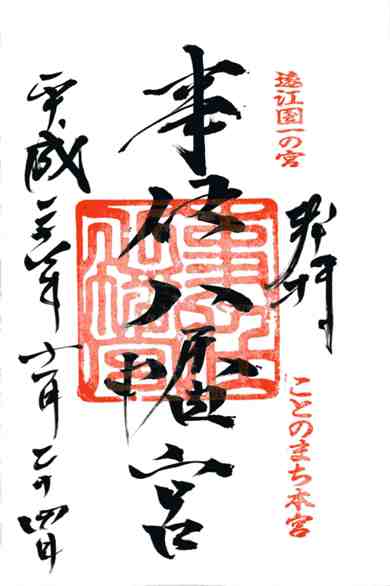 遠江國一の宮
奉拝
ことのまち本宮
事任八幡宮
平成二十六年十一月二十四日